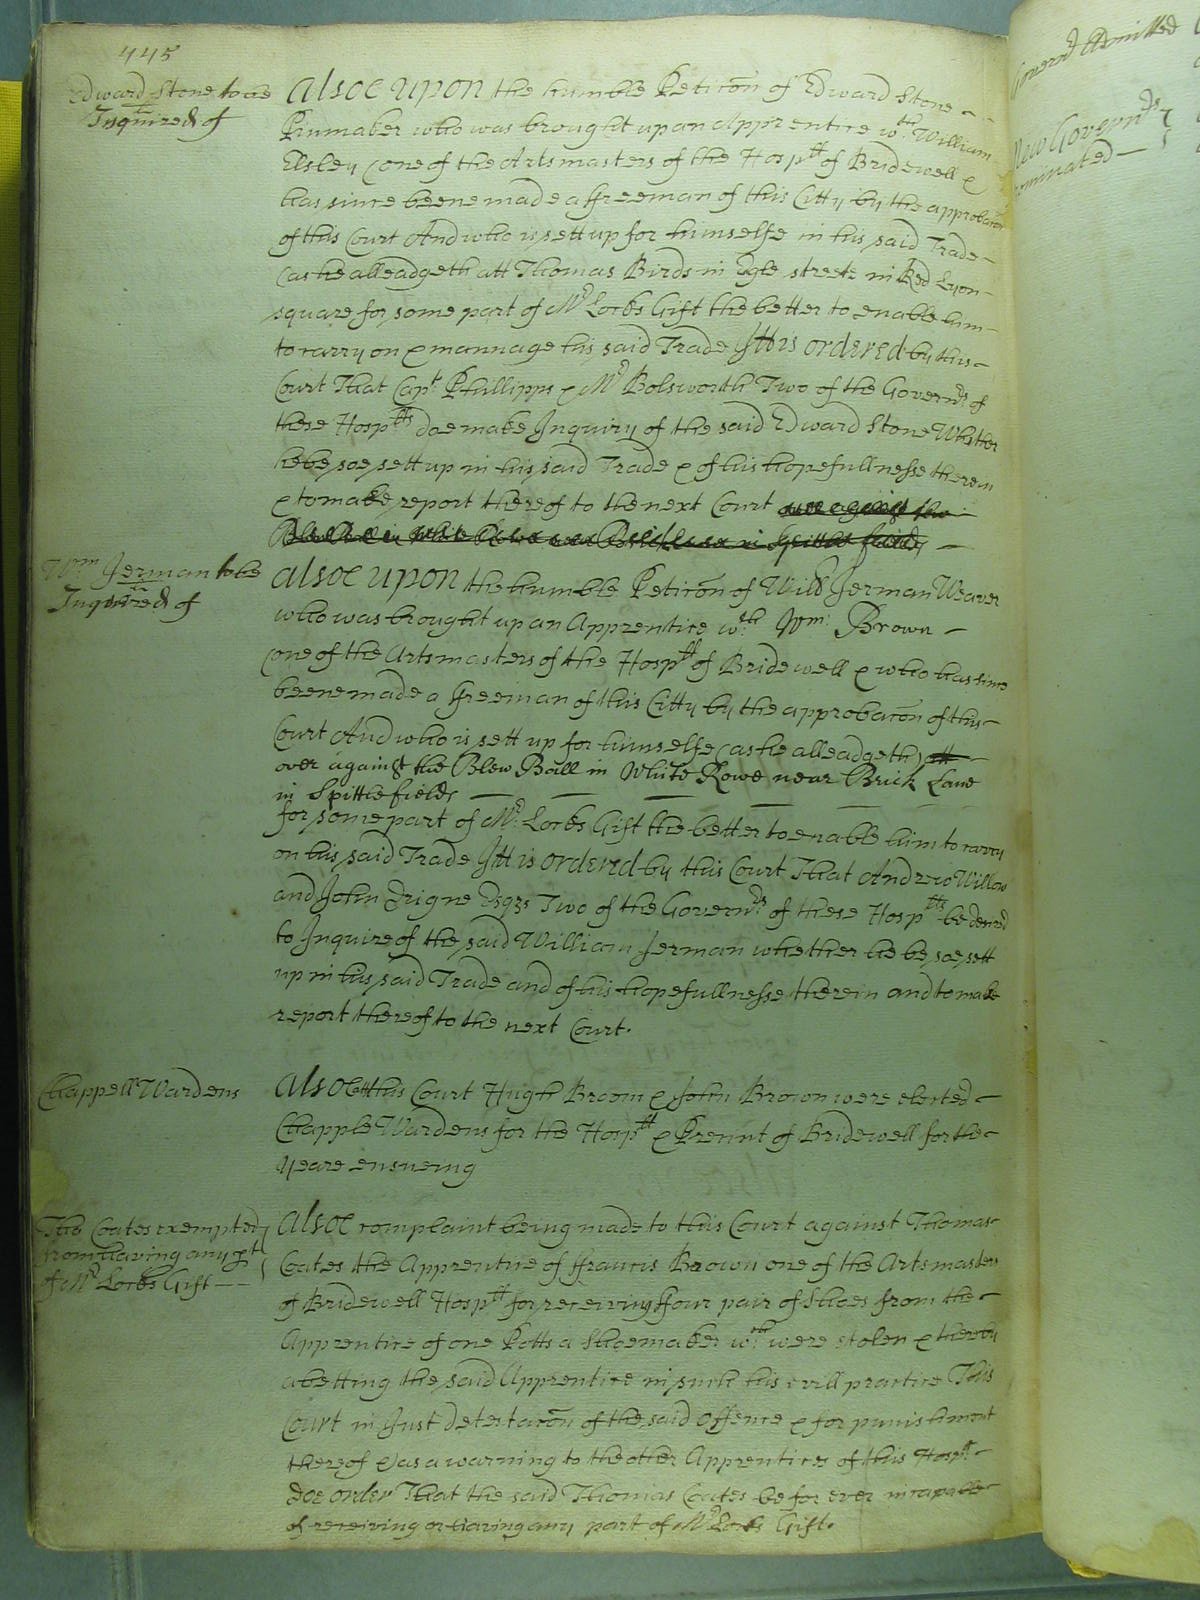 445
Edward Stone to be
Inquired of
Alsoe upon the humble Peticōn of Edward Stone
Pinmaker who was brought up an Apprentice wth William
Elsley (one of the Artsmasters of the Hospll of Bridewell &
has since beene made a ffreeman of this Citty by the approbacōn
of this Court And who is sett up for himselfe in his said Trade
(as he alleadgeth att Thomas Birds in Egle streete in Red Lyon
square for some part of Mr Locks Gift the better to enable him
to carry on & mannage his said Trade Itt is ordered by this
Court That Capt Phillipps & Mr Bolsworth Two of the Governrs of
these Hosplls doe make Inquiry of the said Edward Stone Whether
he be soe sett up in his said Trade & of his hopefullnesse therein
& to make report thereof to the next Court over against the
Blew Ball in White Rowe near Brick Lane in Spittle fields
Wm Jerman to be
Inquired of
Alsoe upon the humble Peticōn of Will Jerman Weaver
who was brought up an Apprentice wth Wm: Brown
(one of the Artsmasters of the Hospll of Bridewell & who has since
beene made a ffreeman of this Citty by the approbacōn of this
Court And who is sett up for himselfe (as he alleadgeth) att
over against the Blew Ball in White Rowe near Brick Lane
in Spittlefields
for some part of Mr Locks Gift the better to enable him to carry
on his said Trade Itt is ordered by this Court That Andrew Willow
and John Drigne Esqrs Two of the Governrs of these Hosplls be desired
to Inquire of the said William Jerman whether he be soe sett
up in his said Trade and of his hopefullnesse therein and to make
report thereof to the next Court.
Chappell Wardens
Also att this Court Hugh Broom & John Brown were elected
Chapple Wardens for the Hospll & Precinct of Bridewell for the
yeare ensueing
Tho Coates exempted
from having any pt
of Mr Locks Gift
Alsoe complaint being made to this Court against Thomas
Coates the Apprentice of ffrancis Brown one of the Artsmasters
of Bridewell Hospll for receiving ffour pair of Shoes from the
Apprentice of one Potts a Shoemaker wch were stolen & thereby
abetting the said Apprentice in such his evill practice This
Court in Just detestacōn of the said Offence & for punishment
thereof & as a warning to the other Apprentices of this Hospll
doe order That the said Thomas Coates be for ever incapable
of receiving or having any part of Mr Locks Gift.
Governr Admitted
New Governrs
nominated